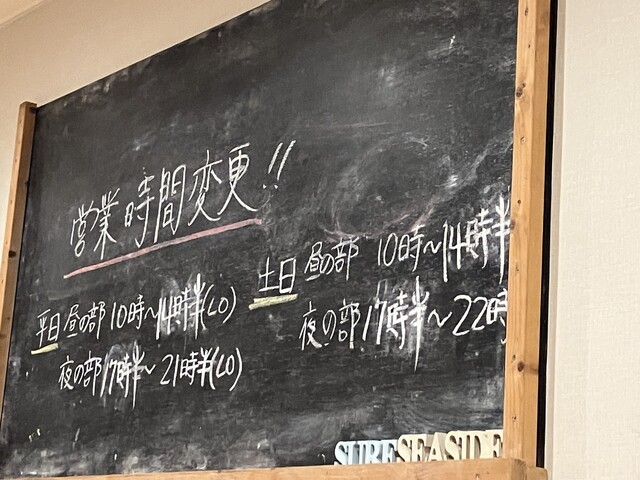 営業時間変更!!
平日 昼の部 10時～14時半(LO)
夜の部 17時半～21時半(LO)
土日 昼の部 10時～14時半
夜の部 17時半～22時
SURF SEASIDE